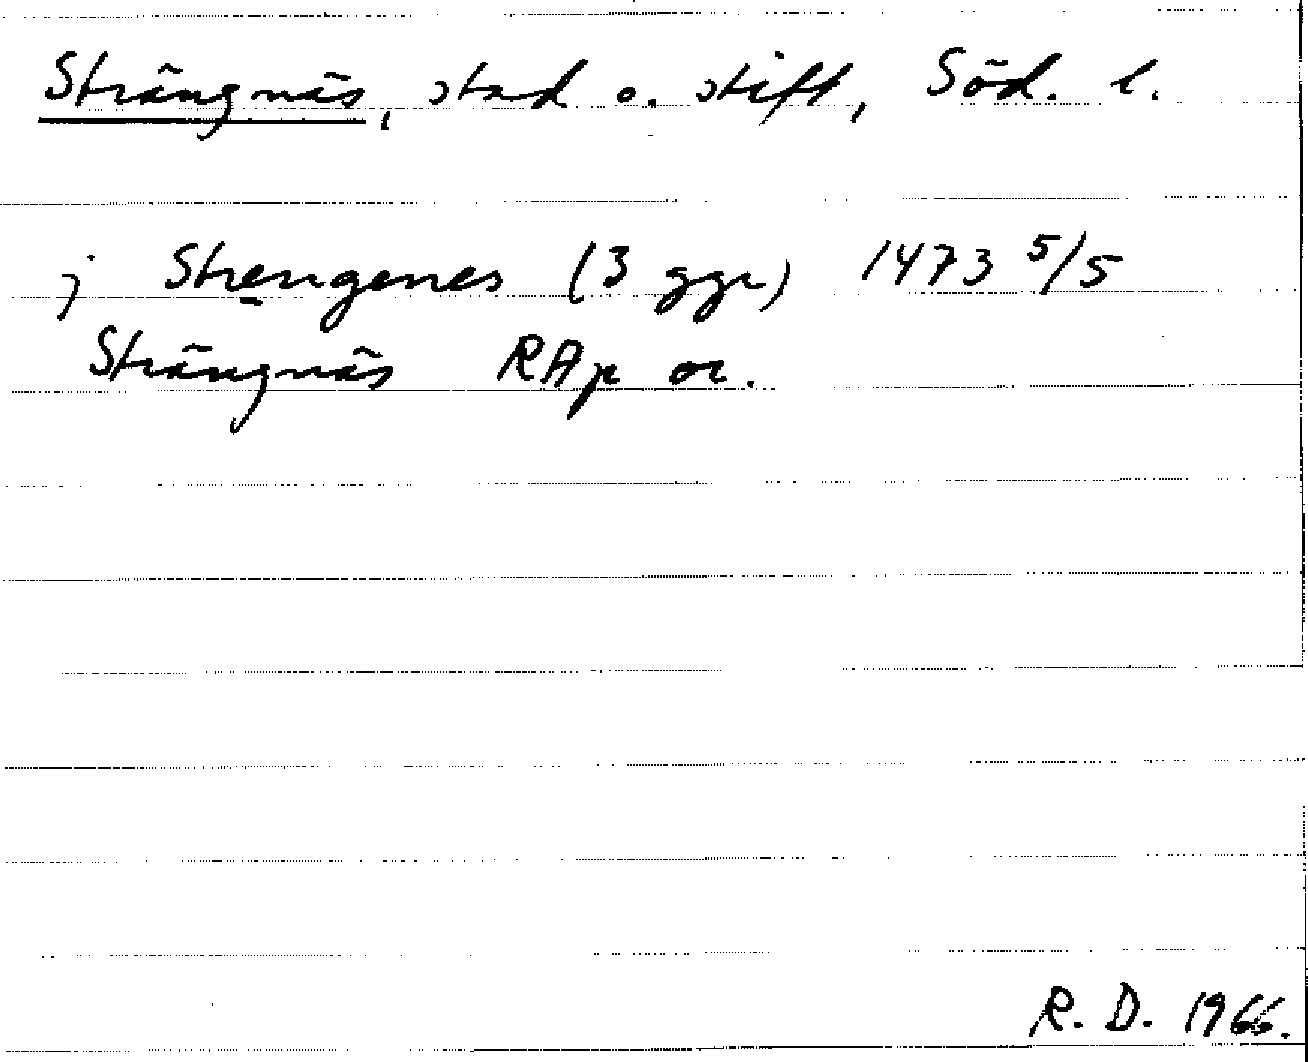 Strängnäs, stad o. stift, Söd. l.
j Stręngenes (3 ggr) 1473 5/5
Strängnäs RAp or.
R. D. 1966.